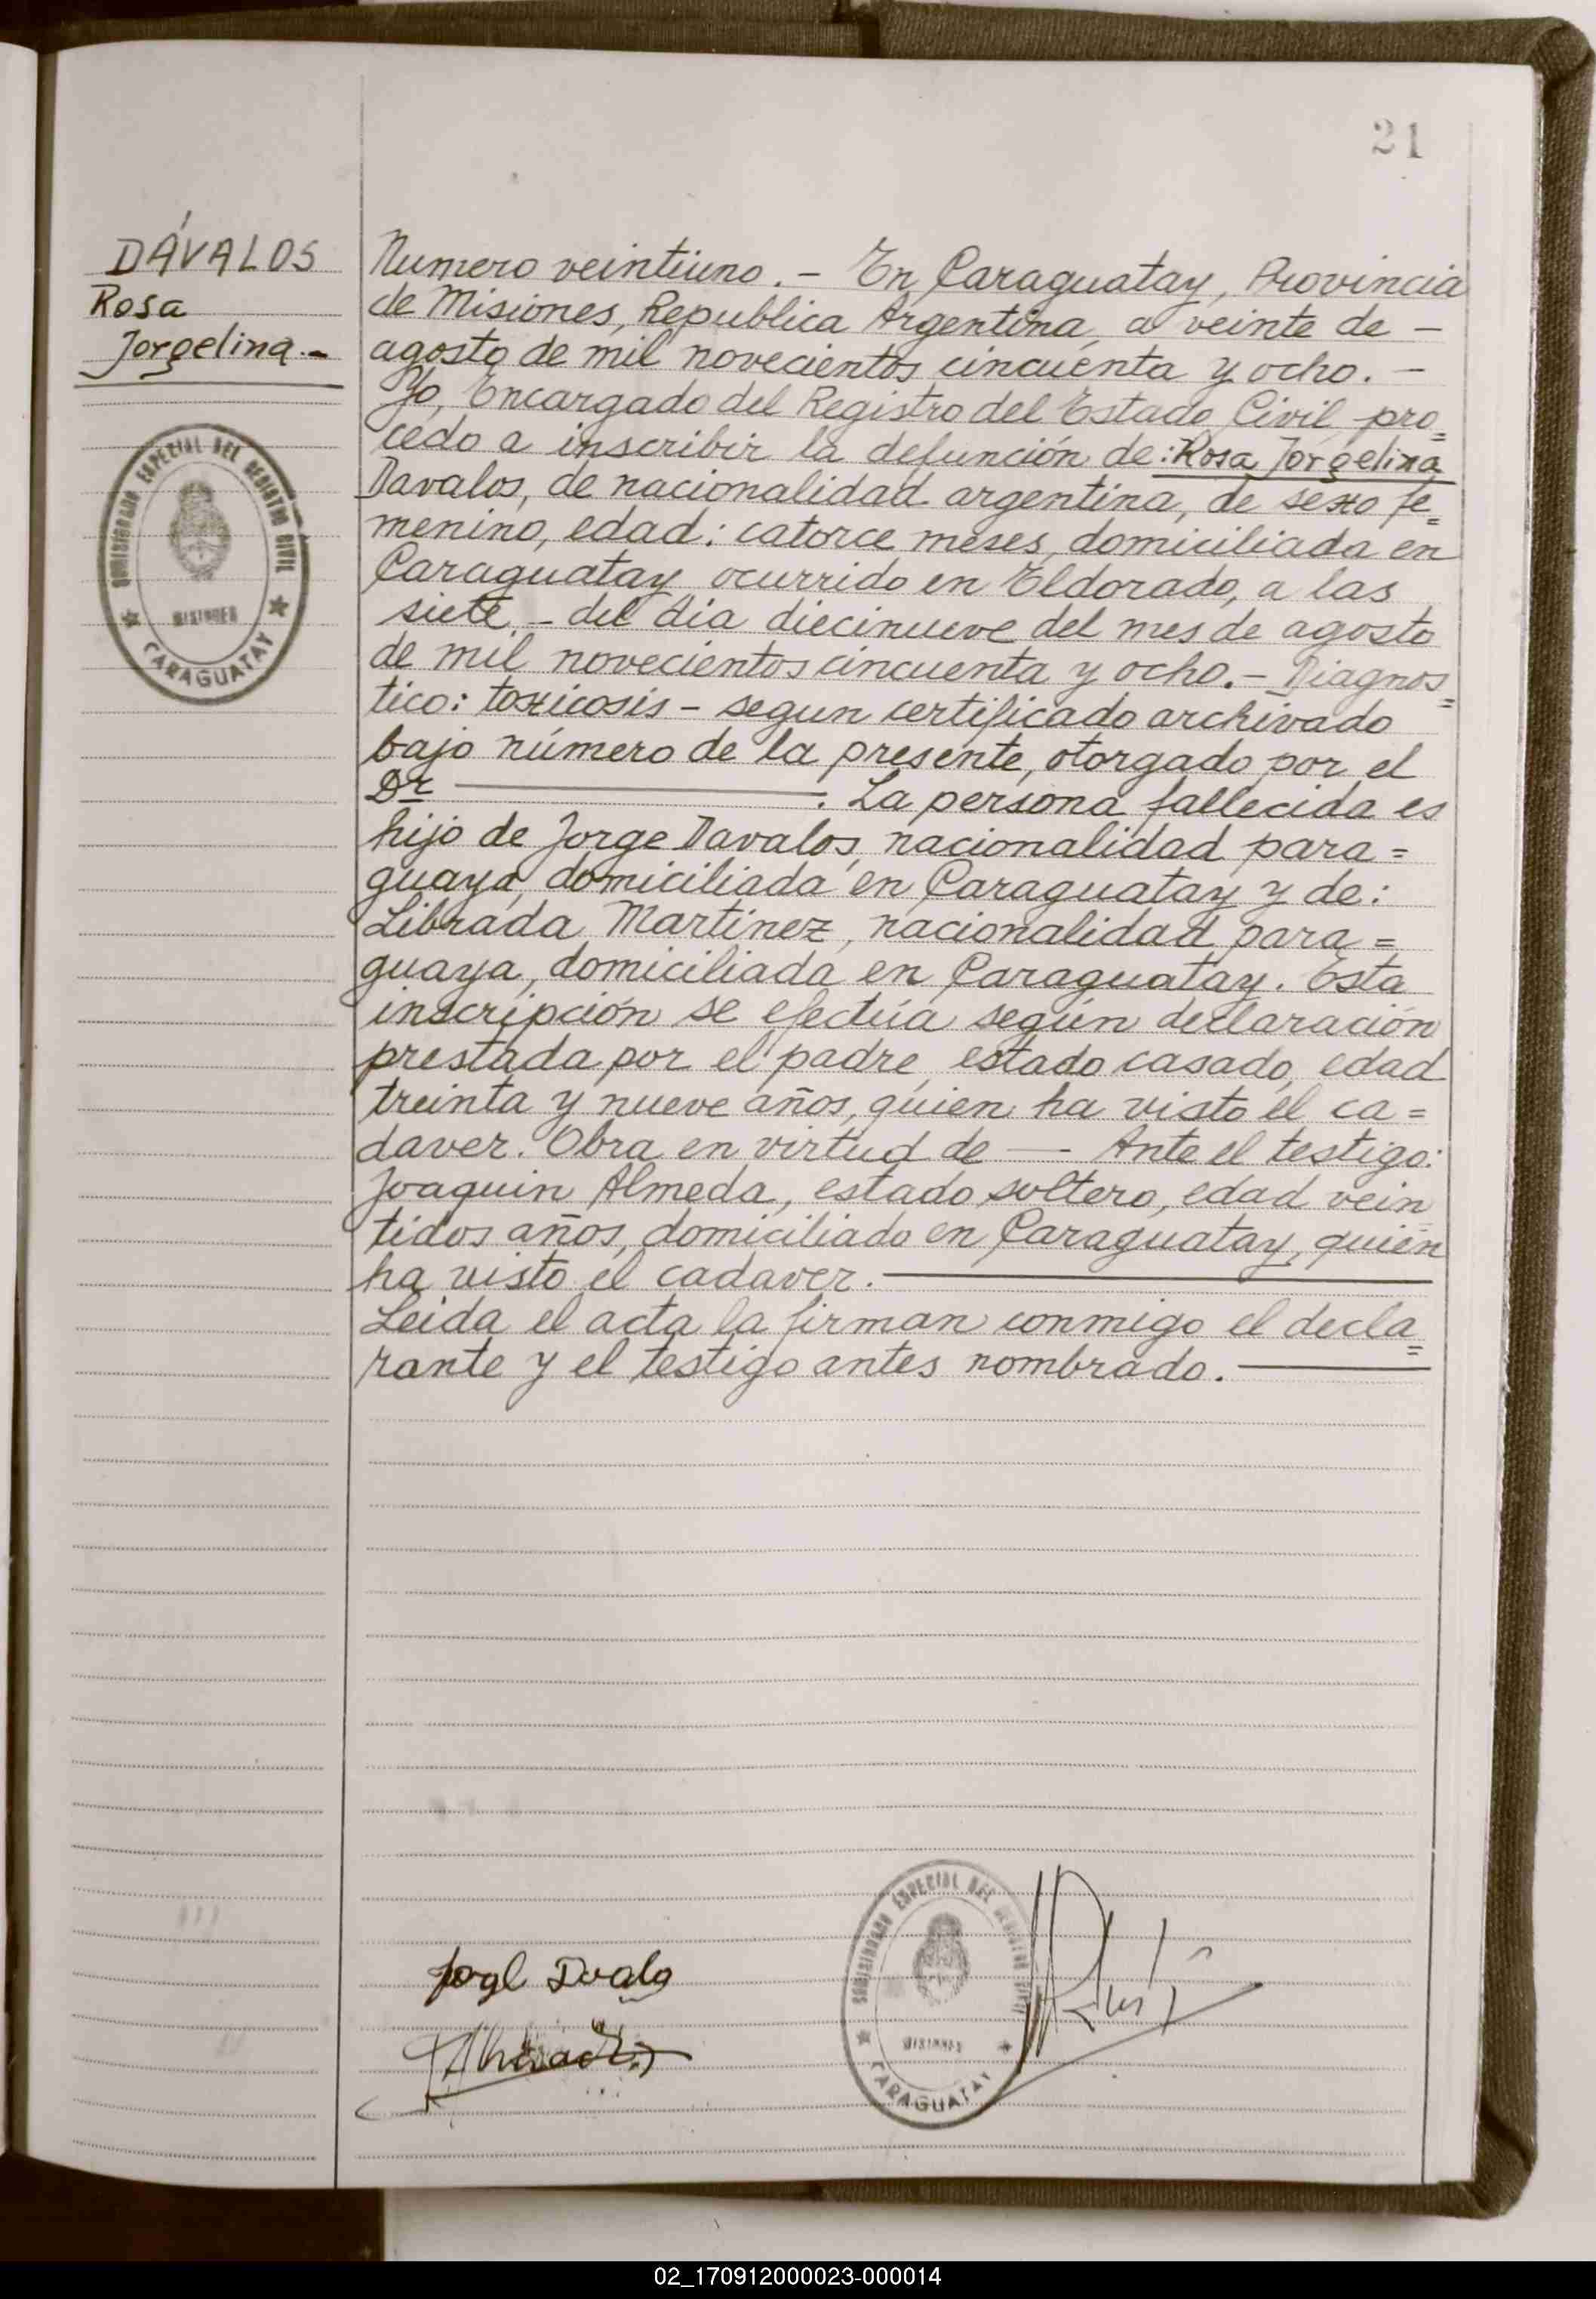 21
DÁVALOS
Rosa
Jorgelina.-
COMISIONADO ESPECIAL DEL REGISTRO CIVIL
MISIONES
CARAGUATAY
Numero veintiuno. - En Caraguatay, Provincia
de Misiones, Republica Argentina, a veinte de -
agosto de mil novecientos cincuenta y ocho. -
Yo, Encargado del Registro del Estado Civil, pro=
cedo a inscribir la defunción de: Rosa Jorgelina
Davalos, de nacionalidad argentina, de sexo fe=
menino, edad: catorce meses, domiciliada en
Caraguatay ocurrido en Eldorado, a las
siete - del dia diecinueve del mes de agosto
de mil novecientos cincuenta y ocho. - Diagnos=
tico: toxicosis - segun certificado archivado
bajo número de la presente, otorgado por el
Dr ———. La persona fallecida es
hijo de Jorge Davalos, nacionalidad para=
guaya, domiciliada en Caraguatay y de:
Librada Martinez, nacionalidad para=
guaya, domiciliada en Caraguatay. Esta
inscripción se efectúa según declaración
prestada por el padre, estado casado, edad
treinta y nueve años, quien ha visto el ca=
daver. Obra en virtud de — Ante el testigo:
Joaquin Almeda, estado soltero, edad vein
tidos años, domiciliado en Caraguatay, quien
ha visto el cadaver. ———
Leida el acta la firman conmigo el decla=
rante y el testigo antes nombrado. ———
COMISIONADO ESPECIAL DEL REGISTRO CIVIL
MISIONES
CARAGUATAY
02_170912000023-000014